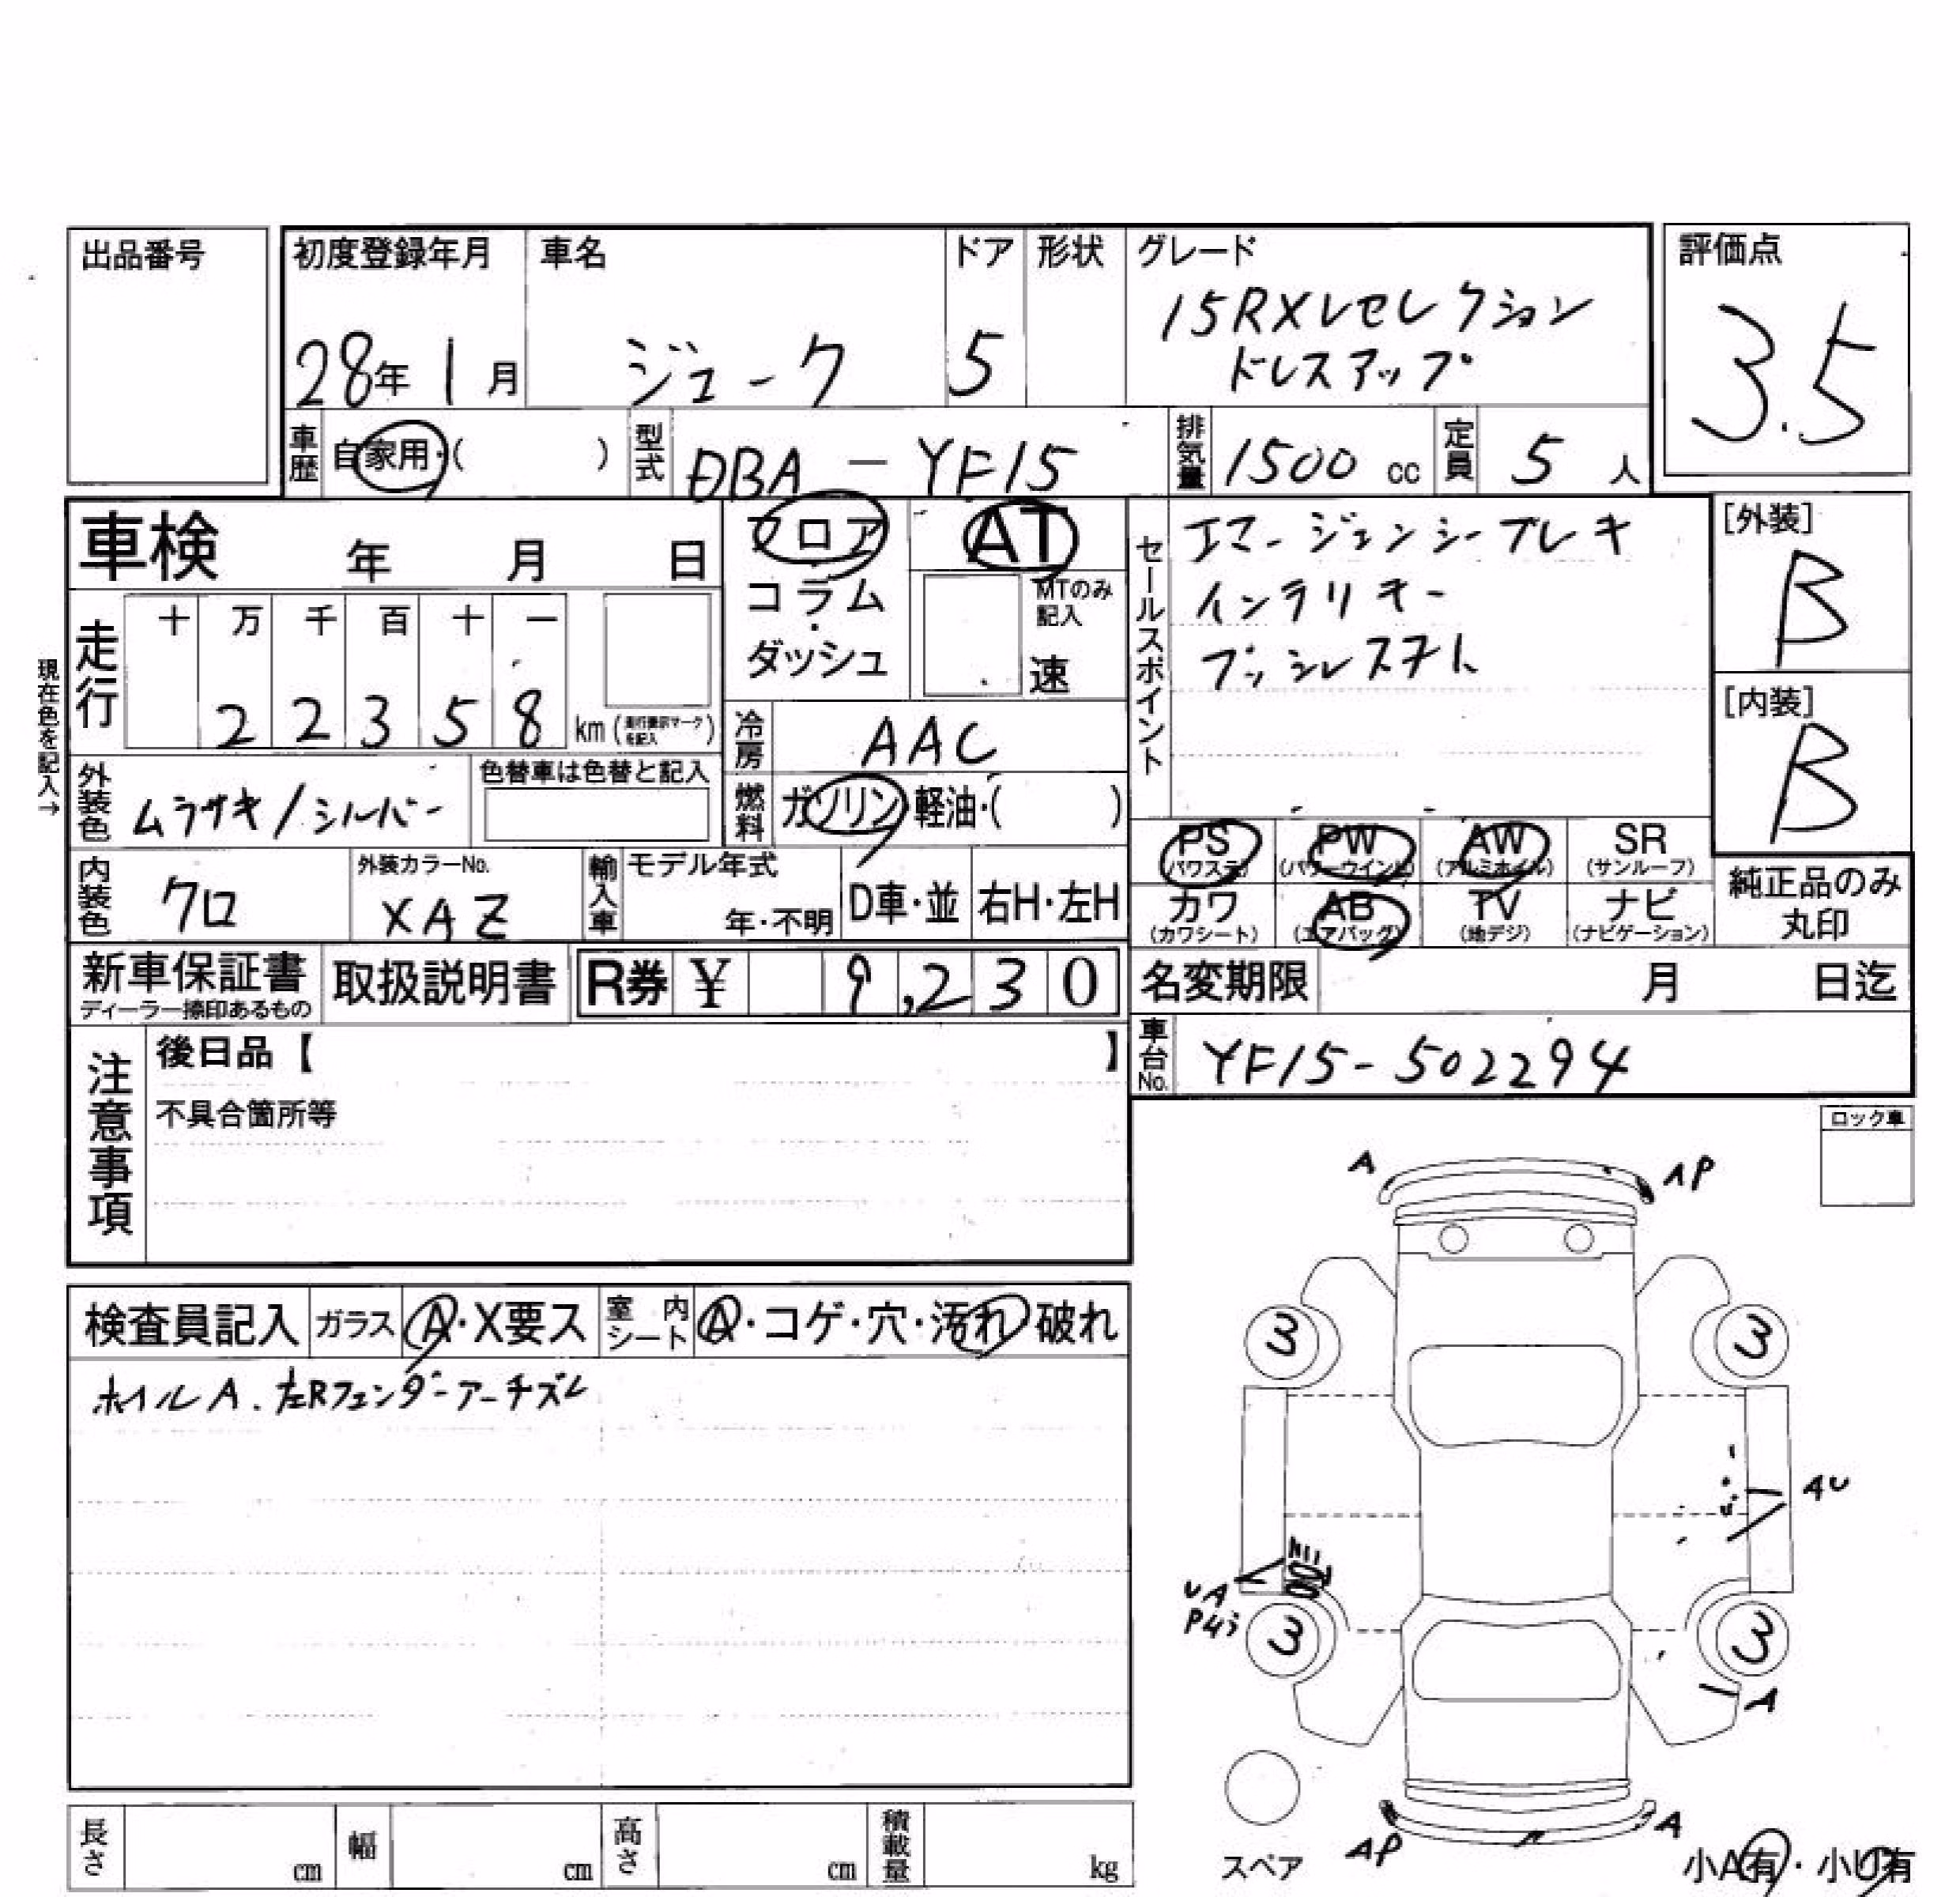 出品番号
初度登録年月 車名 ドア 形状 グレード 評価点
28年 1月 ジューク 5 15RXVセレクション
ドレスアップ
3.5
車歴 自家用・( ) 型式 DBA-YF15 排気量 1500 cc 定員 5 人
車検 年 月 日
フロア
コラム
・
ダッシュ
AT
MTのみ
記入
速
セールスポイント
エマージェンシーブレーキ
インテリキー
プッシュスタート
[外装]
B
[内装]
B
現在色を記入→
走行 十 万 千 百 十 一
2 2 3 5 8 km
冷房 AAC
外装色 ムラサキ/シルバー 色替車は色替と記入
燃料 ガソリン・軽油・( )
PS PW AW SR
(パワステ) (パワーウインド) (アルミホイル) (サンルーフ)
カワ AB TV ナビ
(カワシート) (エアバッグ) (地デジ) (ナビゲーション)
純正品のみ
丸印
内装色 クロ 外装カラーNo. XAZ 輸入車 モデル年式 年・不明 D車・並 右H・左H
新車保証書 取扱説明書 R券 ¥ 9,230 名変期限 月 日迄
ディーラー捺印あるもの
車台No. YF15-502294
注意事項
後日品【 】
不具合箇所等
ロック車
検査員記入 ガラス A・X要ス 室内シート A・コゲ・穴・汚れ 破れ
ホイルA. 左Rフェンダーアーチズレ
A AP
3 3
AU
UA
3 3
A
AP A
スペア
小A有・小U有
長さ cm 幅 cm 高さ cm 積載量 kg